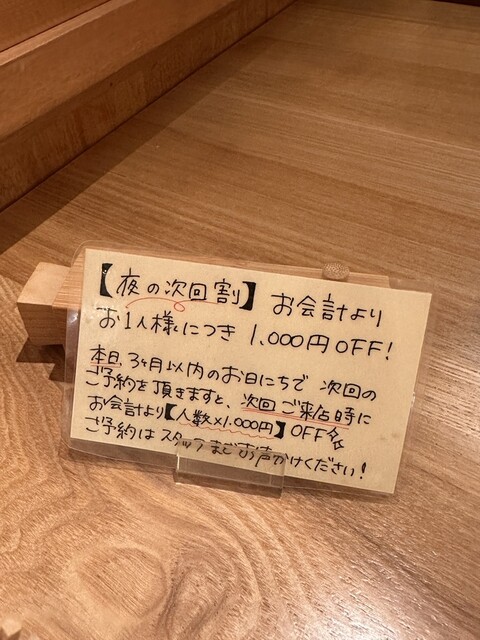 【夜の次回割】 お会計より
お1人様につき 1,000円OFF!
本日、3ヶ月以内のお日にちで 次回の
ご予約を頂きますと、次回ご来店時に
お会計より【人数×1,000円】OFF
ご予約は スタッフまでお声かけください!